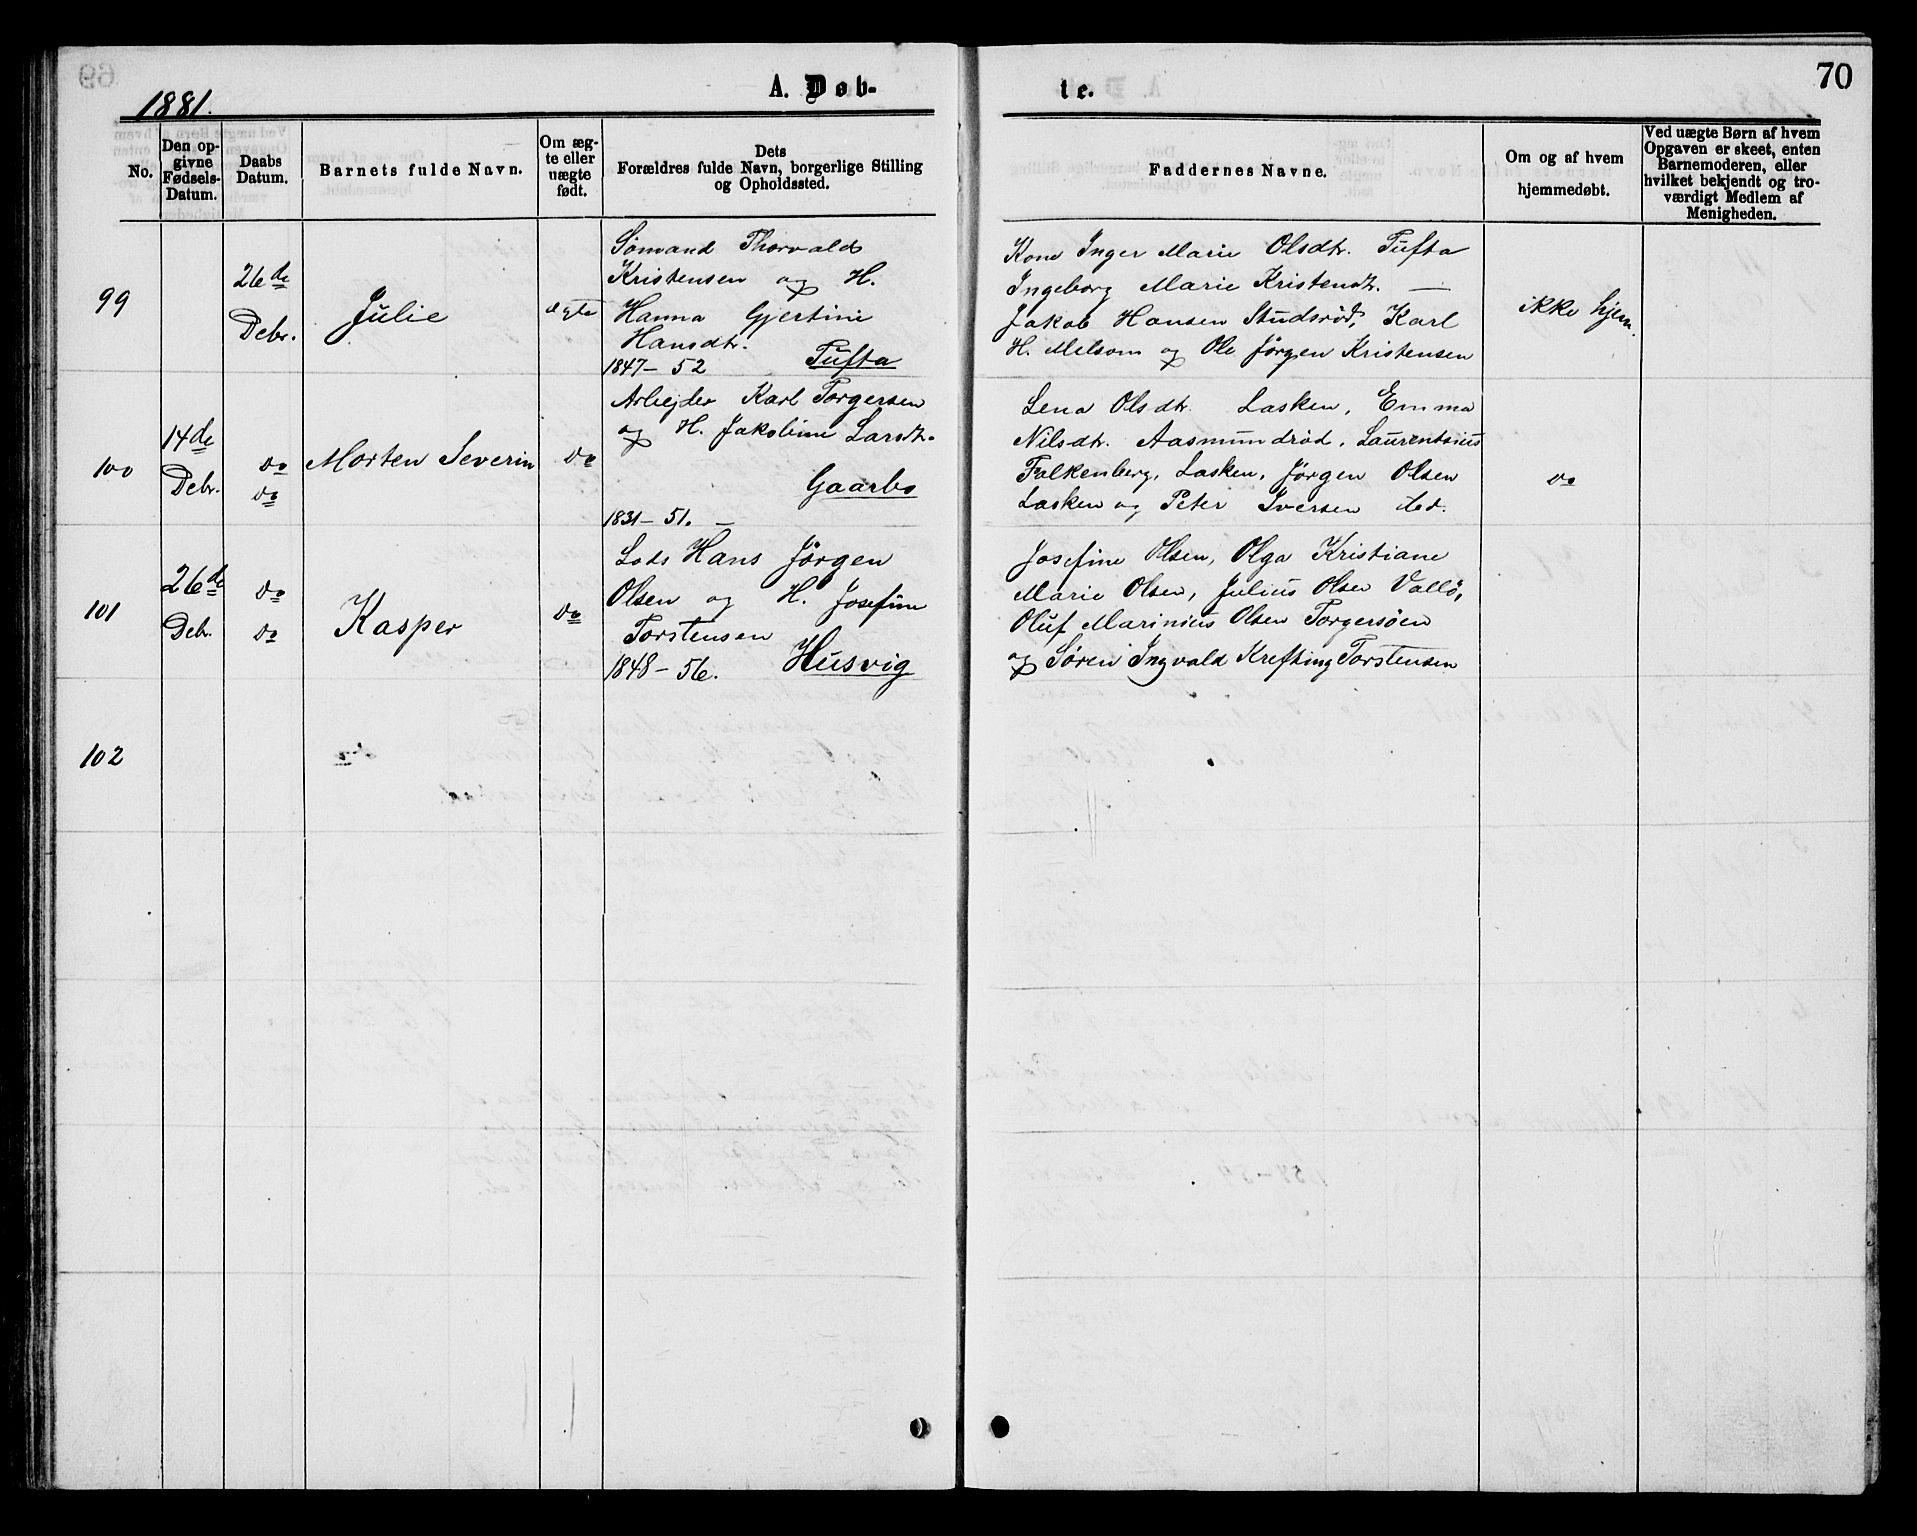 1881.
A. Døb-
te.
70
No.
Den op-
givne
Fødsels-
Datum.
Daabs
Datum.
Barnets fulde Navn.
Om æg-
te eller
uægte
født.
Dets
Forældres fulde Navn, borgerlige Stilling
og Opholdssted.
Faddernes Navne.
Om og af hvem
hjemmedøbt.
Ved uægte Børn af hvem
Opgaven er skeet, enten
Barnemoderen, eller
hvilket bekjendt og tro-
værdigt Medlem af
Menigheden.
99
26de
Debr.
Julie
ægte
Sømand Thorvald
Kristensen og H.
Hanna Gjertine
Hansdtr.
1847-52 Tufta
Kone Inger Marie Olsdtr. Tufta
Ingeborg Marie Kristendt. —
Jakob Hansen Studsrød, Karl
H. Melsom og Ole Jørgen Kristensen
ikke hjem.
100
14de
Debr.
do
do
Morten Severin
do
Arbejder Karl Torgersen
og H. Jakobine Larsdtr.
Gaarbo
1831-51. —
Lena Olsdtr. Lasken, Emma
Nilsdtr. Aasmundrød, Laurentsius
Falkenberg, Lasken, Jørgen Olsen
Lasken og Peter Iversen
do
101
26de
Debr.
do
do
Kasper
do
Lods Hans Jørgen
Olsen og H. Josefine
Torstensen
1848-56. Husvig
Josefine Olsen, Olga Kristiane
Marie Olsen, Julius Olsen Vallö,
Oluf Marinius Olsen Torgersöen
og Søren Ingvald Krefting Torstensen
102